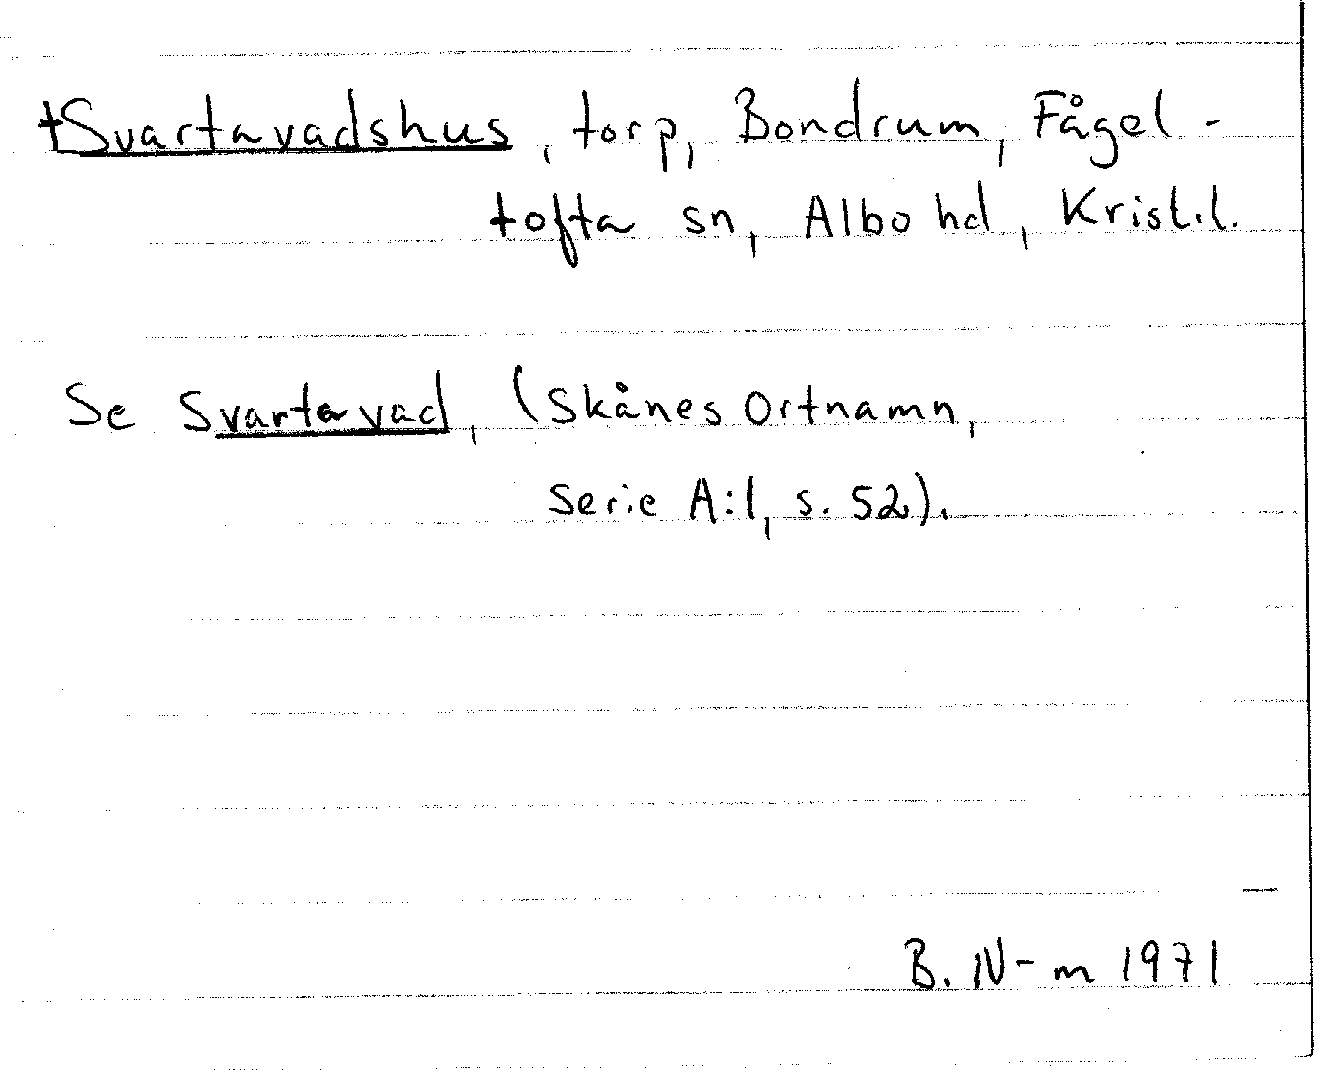 †Svartavadshus, torp, Bondrum, Fågel-
tofta sn, Albo hd, Krist.l.
Se Svartavad, (Skånes Ortnamn,
Serie A:1, s. 52).
B. N-m 1971